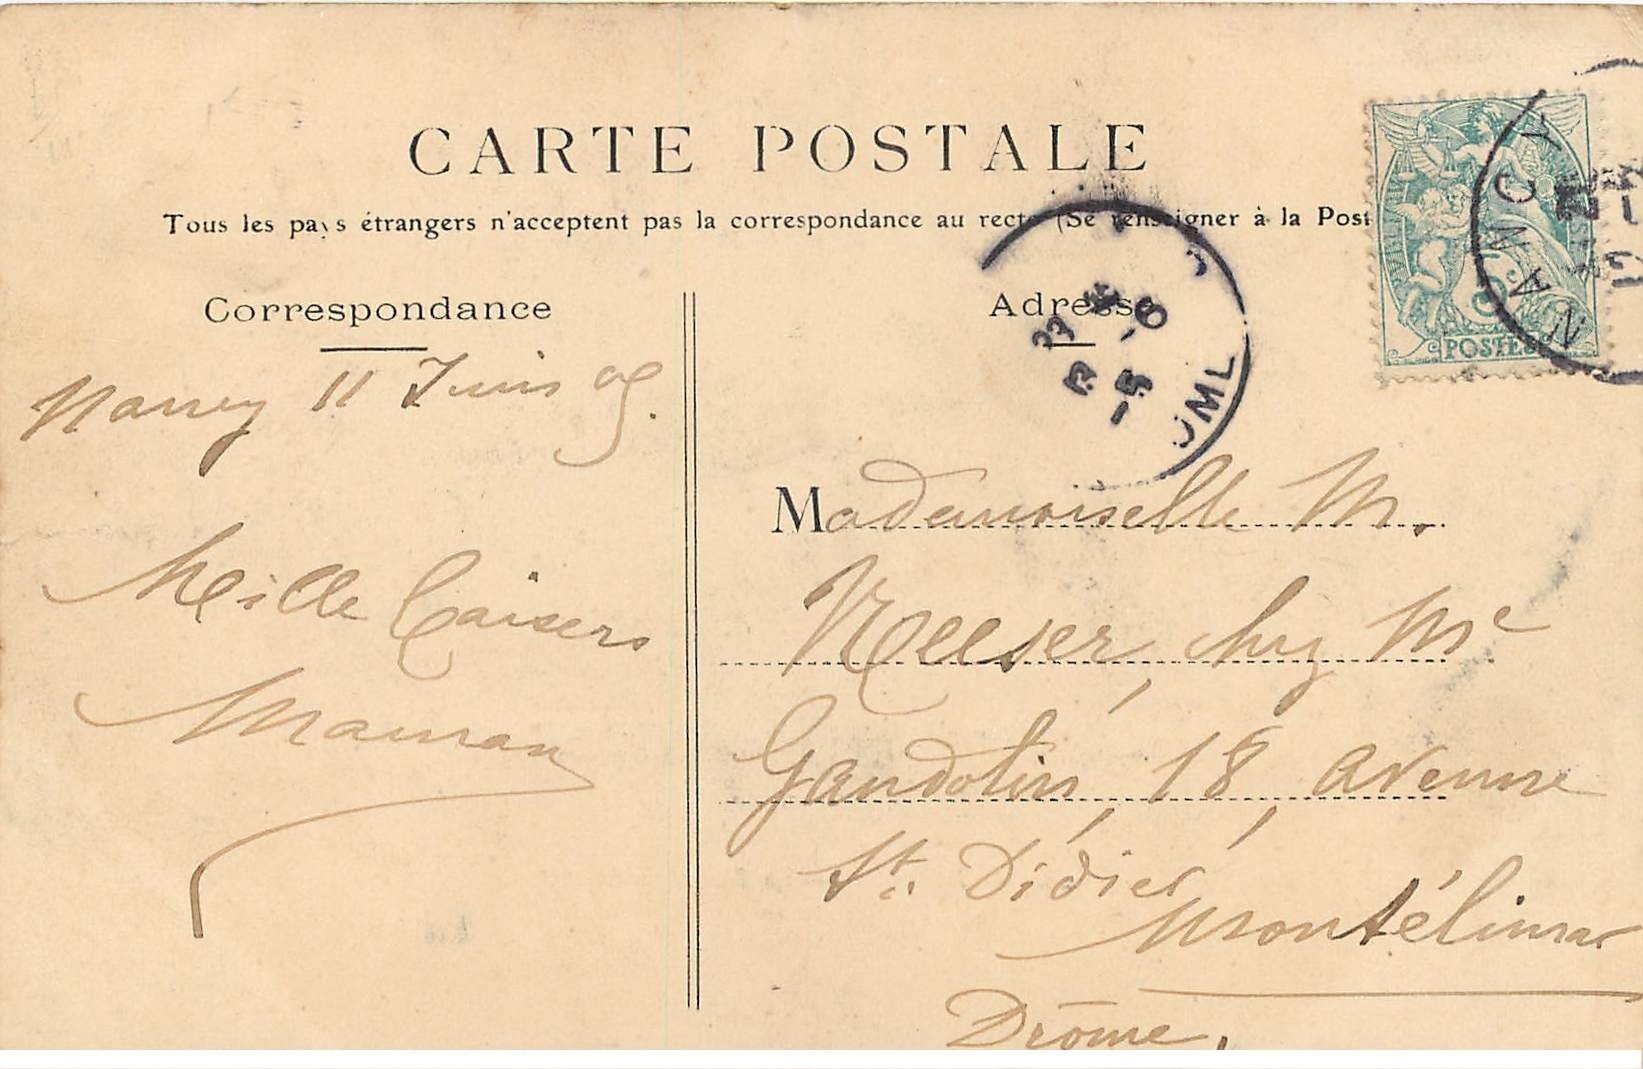 CARTE POSTALE
Tous les pays étrangers n'acceptent pas la correspondance au recto (Se renseigner à la Post
Correspondance
Adresse
POSTES
NANCY
Nancy 11 Juin 05.
Mille baisers
Maman
Mademoiselle M.
Neeser, chez Me
Gandolin, 18, avenue
St. Didier
Montélimar
Drôme,